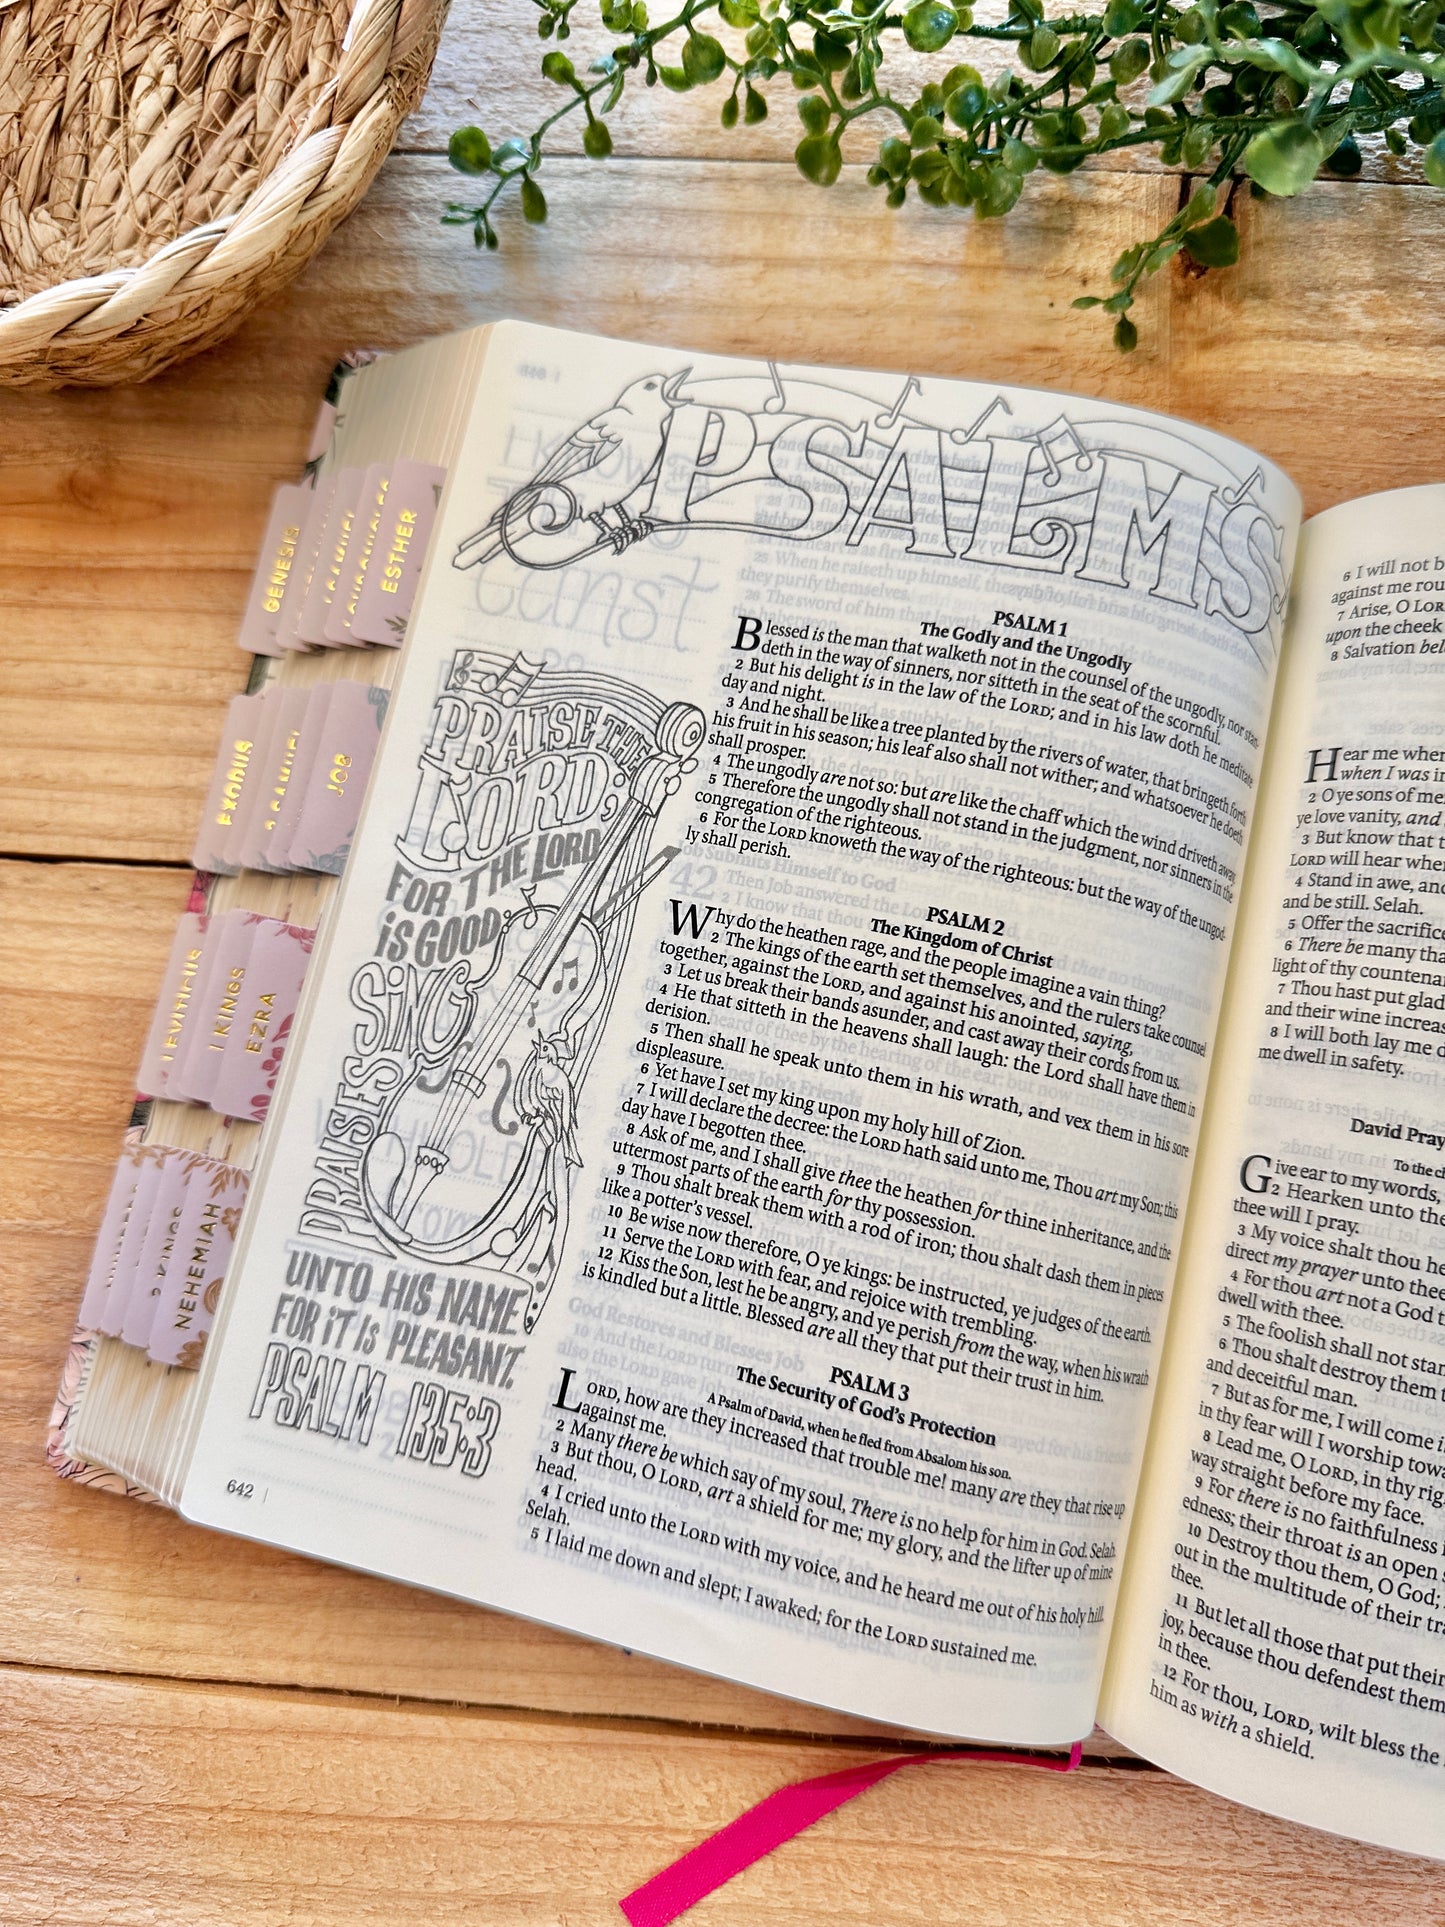 GENESIS
ESTHER
EXODUS
JOB
I KINGS
EZRA
NEHEMIAH
PSALMS
PRAISE THE
LORD;
FOR THE LORD
IS GOOD:
SING
PRAISES
UNTO HIS NAME
FOR IT IS PLEASANT.
PSALM 135:3
642
PSALM 1
The Godly and the Ungodly
Blessed is the man that walketh not in the counsel of the ungodly, nor stan-
deth in the way of sinners, nor sitteth in the seat of the scornful.
2 But his delight is in the law of the LORD; and in his law doth he meditate
day and night.
3 And he shall be like a tree planted by the rivers of water, that bringeth forth
his fruit in his season; his leaf also shall not wither; and whatsoever he doeth
shall prosper.
4 The ungodly are not so: but are like the chaff which the wind driveth away.
5 Therefore the ungodly shall not stand in the judgment, nor sinners in the
congregation of the righteous.
6 For the LORD knoweth the way of the righteous: but the way of the ungod-
ly shall perish.
PSALM 2
The Kingdom of Christ
Why do the heathen rage, and the people imagine a vain thing?
2 The kings of the earth set themselves, and the rulers take counsel
together, against the LORD, and against his anointed, saying,
3 Let us break their bands asunder, and cast away their cords from us.
4 He that sitteth in the heavens shall laugh: the Lord shall have them in
derision.
5 Then shall he speak unto them in his wrath, and vex them in his sore
displeasure.
6 Yet have I set my king upon my holy hill of Zion.
7 I will declare the decree: the LORD hath said unto me, Thou art my Son; this
day have I begotten thee.
8 Ask of me, and I shall give thee the heathen for thine inheritance, and the
uttermost parts of the earth for thy possession.
9 Thou shalt break them with a rod of iron; thou shalt dash them in pieces
like a potter's vessel.
10 Be wise now therefore, O ye kings: be instructed, ye judges of the earth.
11 Serve the LORD with fear, and rejoice with trembling.
12 Kiss the Son, lest he be angry, and ye perish from the way, when his wrath
is kindled but a little. Blessed are all they that put their trust in him.
PSALM 3
The Security of God's Protection
A Psalm of David, when he fled from Absalom his son.
LORD, how are they increased that trouble me! many are they that rise up
against me.
2 Many there be which say of my soul, There is no help for him in God. Selah.
3 But thou, O LORD, art a shield for me; my glory, and the lifter up of mine
head.
4 I cried unto the LORD with my voice, and he heard me out of his holy hill.
Selah.
5 I laid me down and slept; I awaked; for the LORD sustained me.
6 I will not b
against me rou
7 Arise, O LOR
upon the cheek
8 Salvation bel
Hear me when
when I was in
2 O ye sons of me
ye love vanity, and
3 But know that t
LORD will hear when
4 Stand in awe, and
and be still. Selah.
5 Offer the sacrifice
6 There be many tha
light of thy countenan
7 Thou hast put glad
and their wine increas
8 I will both lay me d
me dwell in safety.
David Pray
To the ch
Give ear to my words,
2 Hearken unto the
thee will I pray.
3 My voice shalt thou he
direct my prayer unto thee
4 For thou art not a God t
dwell with thee.
5 The foolish shall not stan
6 Thou shalt destroy them t
and deceitful man.
7 But as for me, I will come i
in thy fear will I worship towa
8 Lead me, O LORD, in thy rig
way straight before my face.
9 For there is no faithfulness
edness; their throat is an open s
10 Destroy thou them, O God;
out in the multitude of their tra
thee.
11 But let all those that put their
joy, because thou defendest them
in thee.
12 For thou, LORD, wilt bless the
him as with a shield.